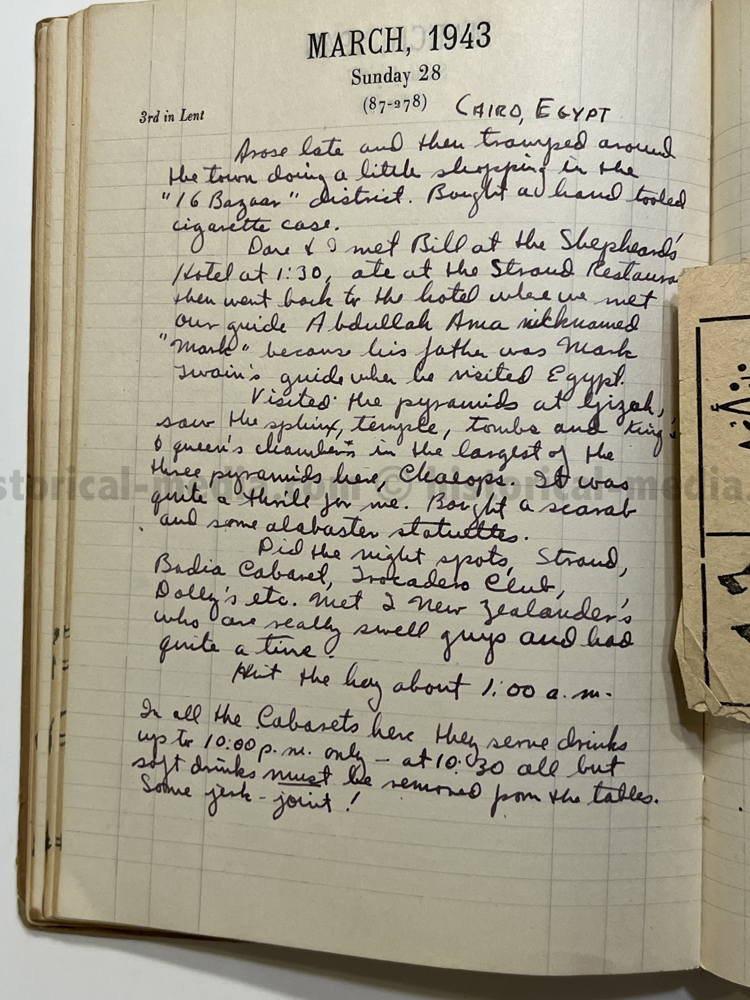 MARCH, 1943
Sunday 28
(87-278) CAIRO, EGYPT
3rd in Lent
Arose late and then tramped around
the town doing a little shopping in the
"16 Bazaar" district. Bought a hand tooled
cigarette case.
Dave & I met Bill at the Shepheard's
Hotel at 1:30, ate at the Strand Restaura
then went back to the hotel where we met
our guide Abdullah Ama nicknamed
"Mark" because his father was Mark
Twain's guide when he visited Egypt.
Visited the pyramids at Gizah,
saw the sphinx, temple, tombs and King's
& queen's chambers in the largest of the
three pyramids here, Cheaops. It was
quite a thrill for me. Bought a scarab
and some alabaster statuettes.
Did the night spots, Strand,
Badia Cabaret, Trocadero Club,
Dolly's etc. Met 2 New Zealander's
who are really swell guys and had
quite a time.
Hit the hay about 1:00 a.m.
In all the Cabarets here they serve drinks
up to 10:00 p.m. only – at 10:30 all but
soft drinks must be removed from the tables.
Some jerk-joint!
storical-me © historical-media.